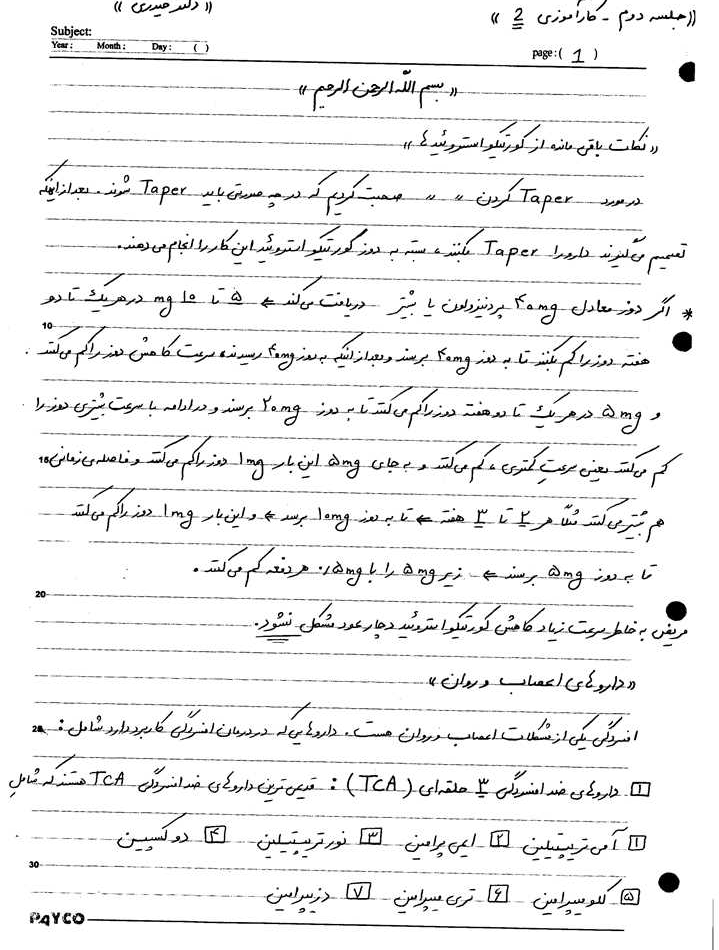 ((جلسه دوم - کارآموزی 2)) ((دکتر حیدری))
Subject:
Year: Month: Day: ( )
page: ( 1 )
«بسم الله الرحمن الرحیم»
«نکات باقی مانده از کورتیکواستروئیدها»
در مورد Taper کردن " " صحبت کردیم که در چه صورتی باید Taper شوند. بعد از اینکه
تصمیم می‌گیرند دارو را Taper بکنند، بسته به دوز کورتیکواستروئید این کار را انجام می‌دهند.
* اگر دوز معادل ۴۰mg پردنیزولون یا بیشتر دریافت می‌کند ← ۵ تا ۱۰ mg در هر یک تا دو
10
هفته دوز را کم بکنند تا به دوز ۴۰mg برسند و بعد از اینکه به دوز ۴۰mg رسیدند، سرعت کاهش دوز را کم می‌کنند
و ۵mg در هر یک تا دو هفته دوز را کم می‌کنند تا به دوز ۲۰mg برسند و در ادامه با سرعت بیشتری دوز را
15 کم می‌کنند یعنی سرعت کمتری، کم می‌کنند و به جای ۵mg این بار ۱mg دوز را کم می‌کنند و فاصله‌ی زمانی
هم بیشتر می‌کنند مثلاً هر ۲ تا ۳ هفته ← تا به دوز ۱۰mg برسد ← و این بار ۱mg دوز را کم می‌کنند
تا به دوز ۵mg برسند ← زیر ۵mg را با ۰/۵mg هر دفعه کم می‌کنند.
20
مریض به خاطر سرعت زیاد کاهش کورتیکواستروئید دچار عود مشکل نشود.
«داروهای اعصاب و روان»
25 افسردگی یکی از مشکلات اعصاب و روان هست. داروهایی که در درمان افسردگی کاربرد دارد شامل:
۱ داروهای ضد افسردگی ۳ حلقه‌ای (TCA): قدیمی ترین داروهای ضد افسردگی TCA هستند که شامل
۱ آمی تریپتیلین ۲ ایمی پرامین ۳ نورتریپتیلین ۴ دوکسپین
30
۵ کلومیپرامین ۶ تری میپرامین ۷ دزیپرامین
PAYCO